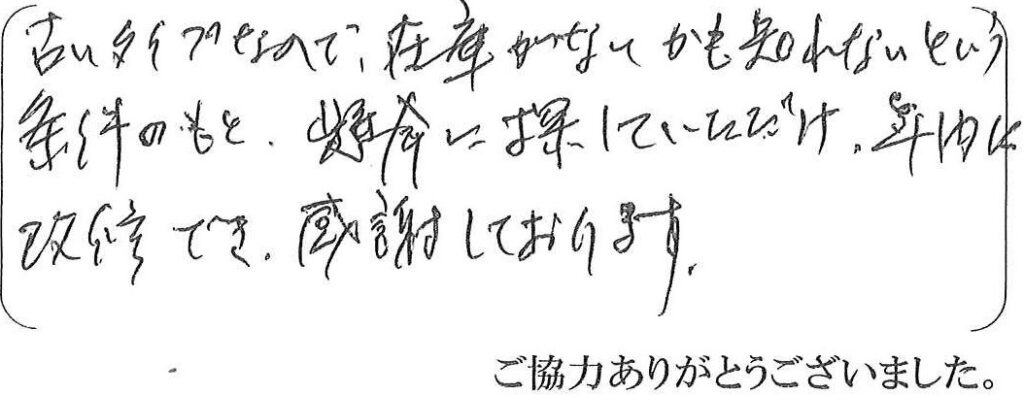 古いタイプなので、在庫がないかも知れないという
条件のもと、迅速にお探していただけ、年内に
改修でき、感謝しております。
ご協力ありがとうございました。